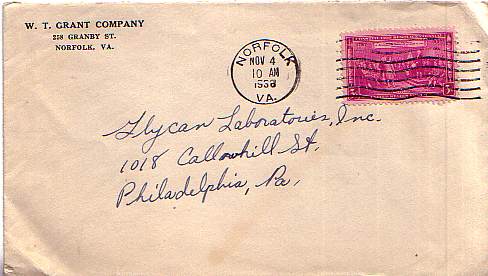 W. T. GRANT COMPANY
258 GRANBY ST.
NORFOLK, VA.
NORFOLK
NOV 4
10 AM
VA.
Flycan Laboratories, Inc.
1018 Callowhill St.
Philadelphia, Pa.